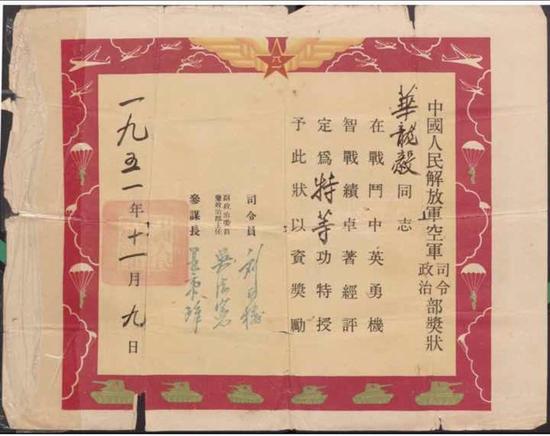 八一
中國人民解放軍空軍司令政治部獎狀
華龍毅同志
在戰鬥中英勇機
智戰績卓著經評
定爲特等功特授
予此狀以資獎勵
司令員
副政治委員
兼政治部主任 吳法憲
參謀長 王秉璋
一九五一年十一月九日